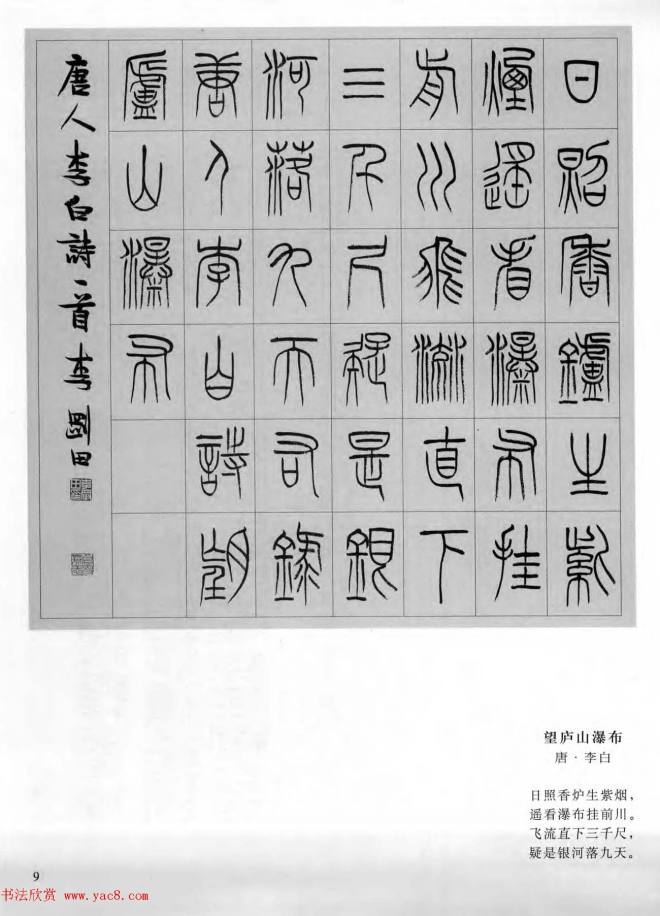 日照香鑪生紫
煙遙看瀑布挂
前川飛流直下
三千尺疑是銀
河落九天右錄
唐人李白詩望
廬山瀑布
唐人李白詩一首李剛田
望庐山瀑布
唐·李白
日照香炉生紫烟，
遥看瀑布挂前川。
飞流直下三千尺，
疑是银河落九天。
9
书法欣赏 www.yac8.com